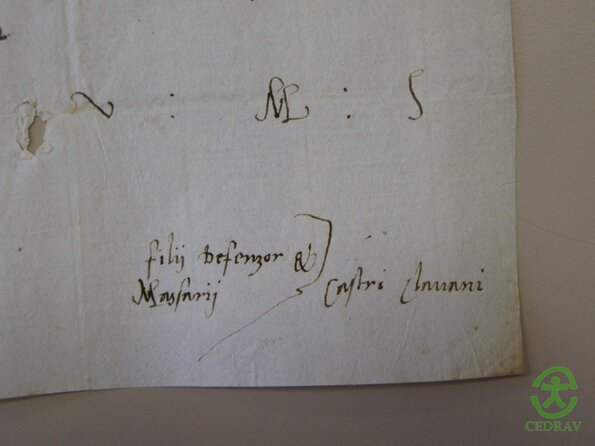 V : M : S
filij Defenzor &
Massarij
Castri Clavani
CEDRAV